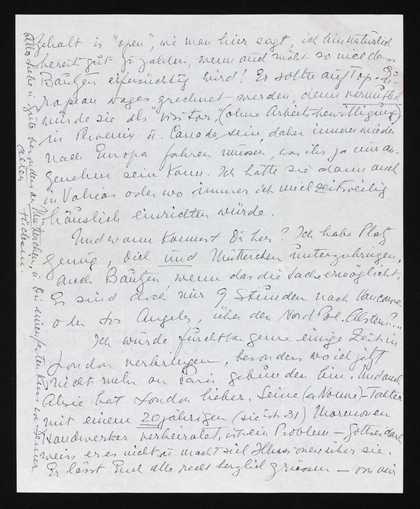 Gehalt is "open", wie man hier sagt, ich bin natürlich
bereit gut zu zahlen, wenn auch nicht so viel dass
Bautzen eifersüchtig wird! Es sollte auf top-Eu-
ropean wages gerechnet werden, denn vermutlich
würde sie als visitor (ohne Arbeitsbewilligung)
in Phoenix u. Canada sein, daher immer wieder
nach Europa fahren müssen, was ihr ja nur an-
genehm sein kann. Ich hätte sie dann auch
in oder wo immer ich mich zeitweilig
häuslich einrichten würde.
Und wann kommst Du her? Ich habe Platz
genug, Dich und Mütterchen unterzubringen,
auch Bautzen, wenn das die Sache ermöglicht.
Es sind doch nur 9 Stunden nach Vancouver
oder Los Angeles, über den Nord Pol.
Ich würde furchtbar gerne einige Zeit in
London verbringen, besonders wo ich jetzt
nicht mehr an Paris gebunden bin. Und auch
hat London lieber. Seine Tochter
mit einem 20jährigen (sie ist 31) Marmoren
Handwerker verheiratet, ist ein Problem — Gottseidank
weiss er es nicht u. macht sich Illusionen über sie.
Er lässt Euch alle recht herzlich grüssen — von mir
alles Liebe u. Gute, besonders an Mütterchen, u. Dir